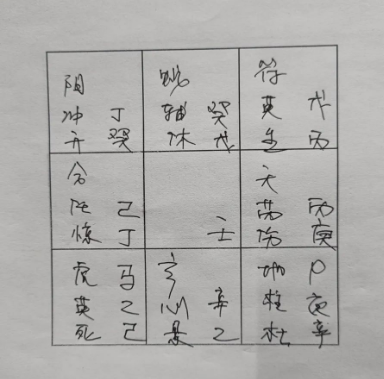 阴
冲 丁
开 癸
蛇
辅 癸
休 戊
符
英 戊
生 丙
合
任 己
惊 丁
壬
天
芮 丙
伤 庚
虎 马
乙
死 己
玄
心 辛
景 乙
地 P
柱 庚
杜 辛